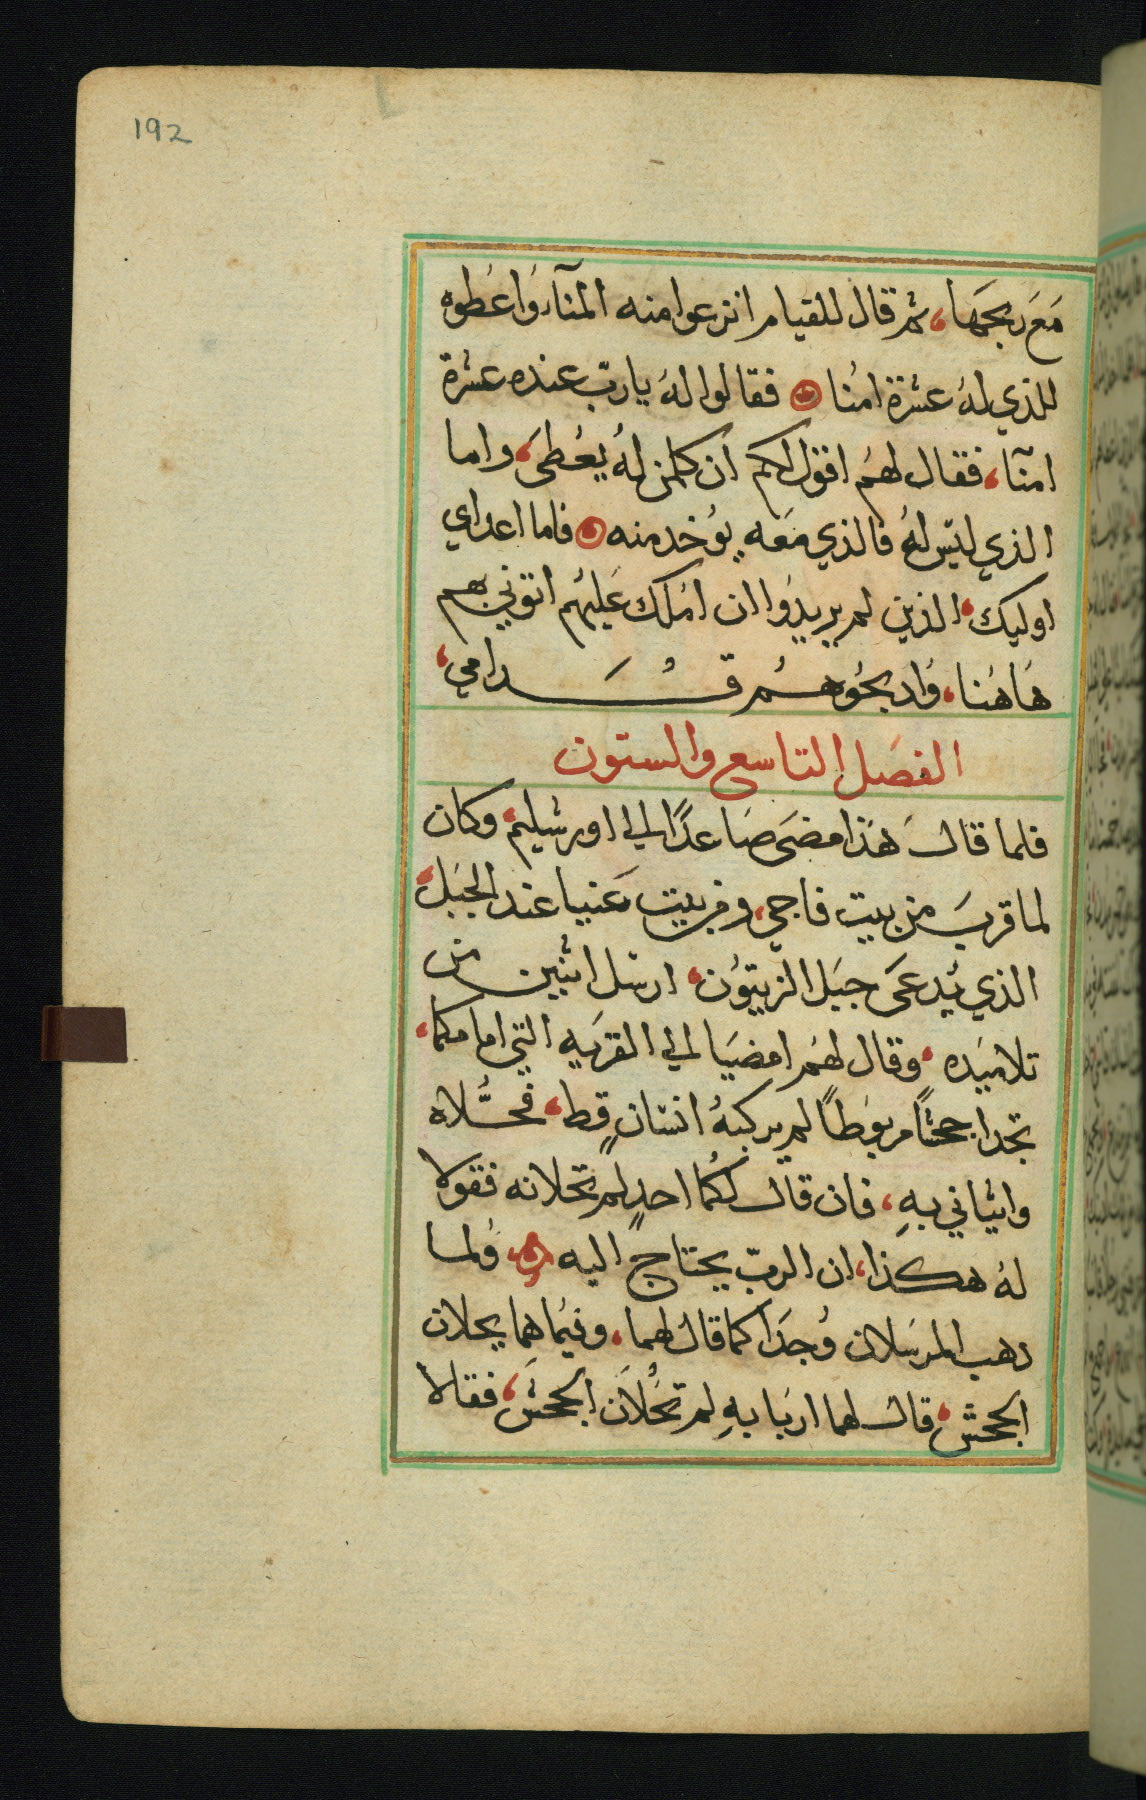 192
مَعَ ربحَها، ثم قال للقيام انزعوا منه المنآء وَاعُطوه
للذي لهُ عشرة امُنا ۞ فقالوا لهُ يا ربّ عنده عشرة
امنآ، فقال لهُم اقول لكم ان كلمن لهُ يُعُطىَ، واما
الذي ليس لهُ فالذي مَعَه يوُخد منه ۞ فاما اعداي
اوليك، الذين لم يريدُوا ان امُلك عَليهُم اتوني بهم
هَاهُنا، وُادبحُوهـُم قـُـدَامي،
الفصَل التاسع والستون
فلما قالَ هَذا مضىَ صَاعدًا الي اورشليم، وكان
لما قربَ من بيت فاجي، وبيت عَنيا عند الجبَل،
الذي يُدعىَ جبَل الزيتوُن، ارسَل اثنين من
تلاميَده، وقال لهُم امضيَا الي القريَه التي امامكما،
تجدا جحشًا مربوُطاً لم يركبهُ انسَان قط، فحُلاه
وايتياني بهِ، فان قال لكُما احد لم تحلانه فقولا
لهُ هكذا، ان الربّ يحتاج اليه ۞ وُلما
دهب المرسَلان وُجدَا كما قال لهما، وفيمُا هما يحلان
الجحش، قال لهما اربَابهِ لم تحُلاَن الجحش، فقالا